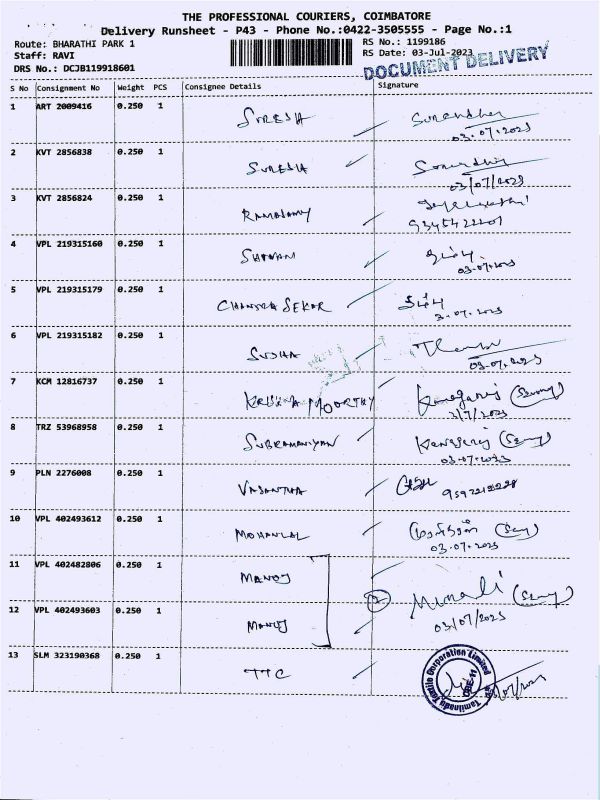 THE PROFESSIONAL COURIERS, COIMBATORE
Delivery Runsheet - P43 - Phone No.:0422-3505555 - Page No.:1
Route: BHARATHI PARK 1
RS No.: 1199186
Staff: RAVI
RS Date: 03-Jul-2023
DRS No.: DCJB119918601
DOCUMENT DELIVERY
S No Consignment No Weight PCS Consignee Details Signature
1 ART 2009416 0.250 1 SURESH Surendher
03.07.2023
2 KVT 2856838 0.250 1 SURESH
03/07/2023
3 KVT 2856824 0.250 1 RAMASAMY
4 VPL 219315160 0.250 1
03.07.2023
5 VPL 219315179 0.250 1 CHANDRA SEKAR
3.07.2023
6 VPL 219315182 0.250 1 SUDHA
03.07.2023
7 KCM 12816737 0.250 1 KRISHNA MOORTHY
3/7/2023
8 TRZ 53968958 0.250 1 SUBRAMANIYAN
03.07.2023
9 PLN 2276008 0.250 1 VASANTHA
10 VPL 402493612 0.250 1 MOHANLAL
03.07.2023
11 VPL 402482806 0.250 1 MANOJ
12 VPL 402493603 0.250 1 MANOJ 2
03/07/2023
13 SLM 323190368 0.250 1 TTC
Tamilnadu Textile Corporation Limited
CBE-11